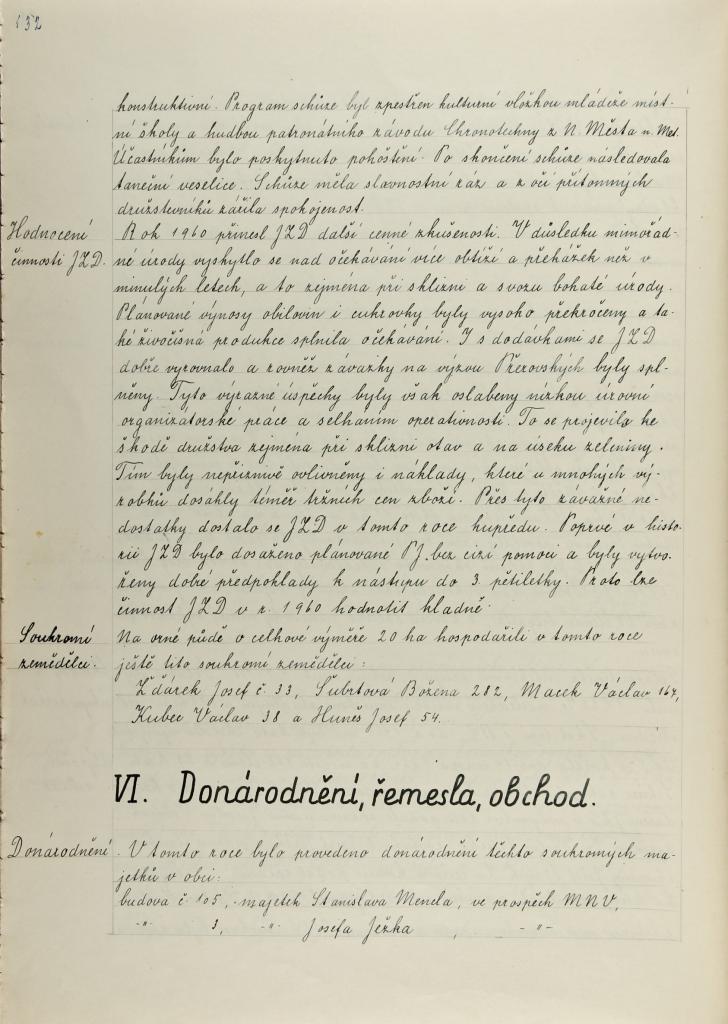 132
konstruktivní. Program schůze byl zpestřen kulturní vložkou mládeže míst-
ní školy a hudbou patronátního závodu Chronotechny z N. Města n. Met.
Účastníkům bylo poskytnuto pohoštění. Po skončení schůze následovala
taneční veselice. Schůze měla slavnostní ráz a z očí přítomných
družstevníků zářila spokojenost.
Hodnocení
činnosti JZD.
Rok 1960 přinesl JZD další cenné zkušenosti. V důsledku mimořád-
né úrody vyskytlo se nad očekávání více obtíží a překážek než v
minulých letech, a to zejména při sklizni a svozu bohaté úrody.
Plánované výnosy obilovin i cukrovky byly vysoko překročeny a ta-
ké živočišná produkce splnila očekávání. I s dodávkami se JZD
dobře vyrovnalo a rovněž závazky na výzvu Přerovských byly spl-
něny. Tyto výrazné úspěchy byly však oslabeny nízkou úrovní
organizatorské práce a selháním operativnosti. To se projevilo ke
škodě družstva zejména při sklizni otav a na úseku zeleniny.
Tím byly nepříznivě ovlivněny i náklady, které u mnohých vý-
robků dosáhly téměř tržních cen zboží. Přes tyto závažné ne-
dostatky dostalo se JZD v tomto roce kupředu. Poprvé v histo-
rii JZD bylo dosaženo plánované PJ. bez cizí pomoci a byly vytvo-
řeny dobré předpoklady k nástupu do 3. pětiletky. Proto lze
činnost JZD v r. 1960 hodnotit kladně.
Soukromí
zemědělci.
Na orné půdě o celkové výměře 20 ha hospodařili v tomto roce
ještě tito soukromí zemědělci:
Žďárek Josef č. 33, Šubrtová Božena 282, Macek Václav 164,
Kubec Václav 38 a Huněš Josef 54.
VI. Donárodnění, řemesla, obchod.
Donárodnění.
V tomto roce bylo provedeno donárodnění těchto soukromých ma-
jetků v obci:
budova č. 105, - majetek Stanislava Mencla, ve prospěch MNV,
-"- 3, -"- Josefa Ježka , -"-